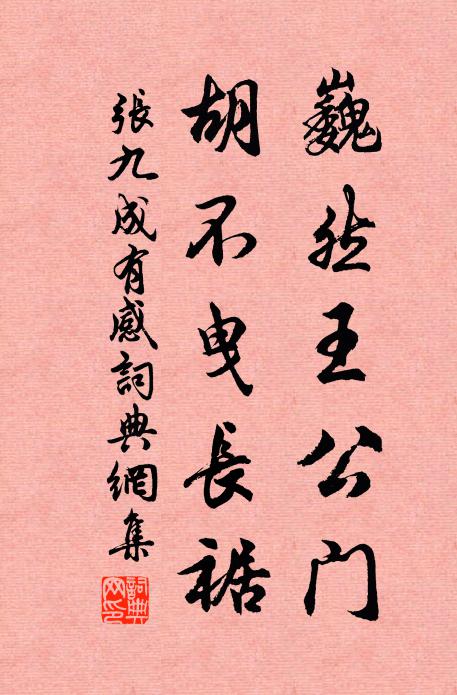 巍然王公門
胡不曳長裾
張九成有感詞典網集
詞典網印